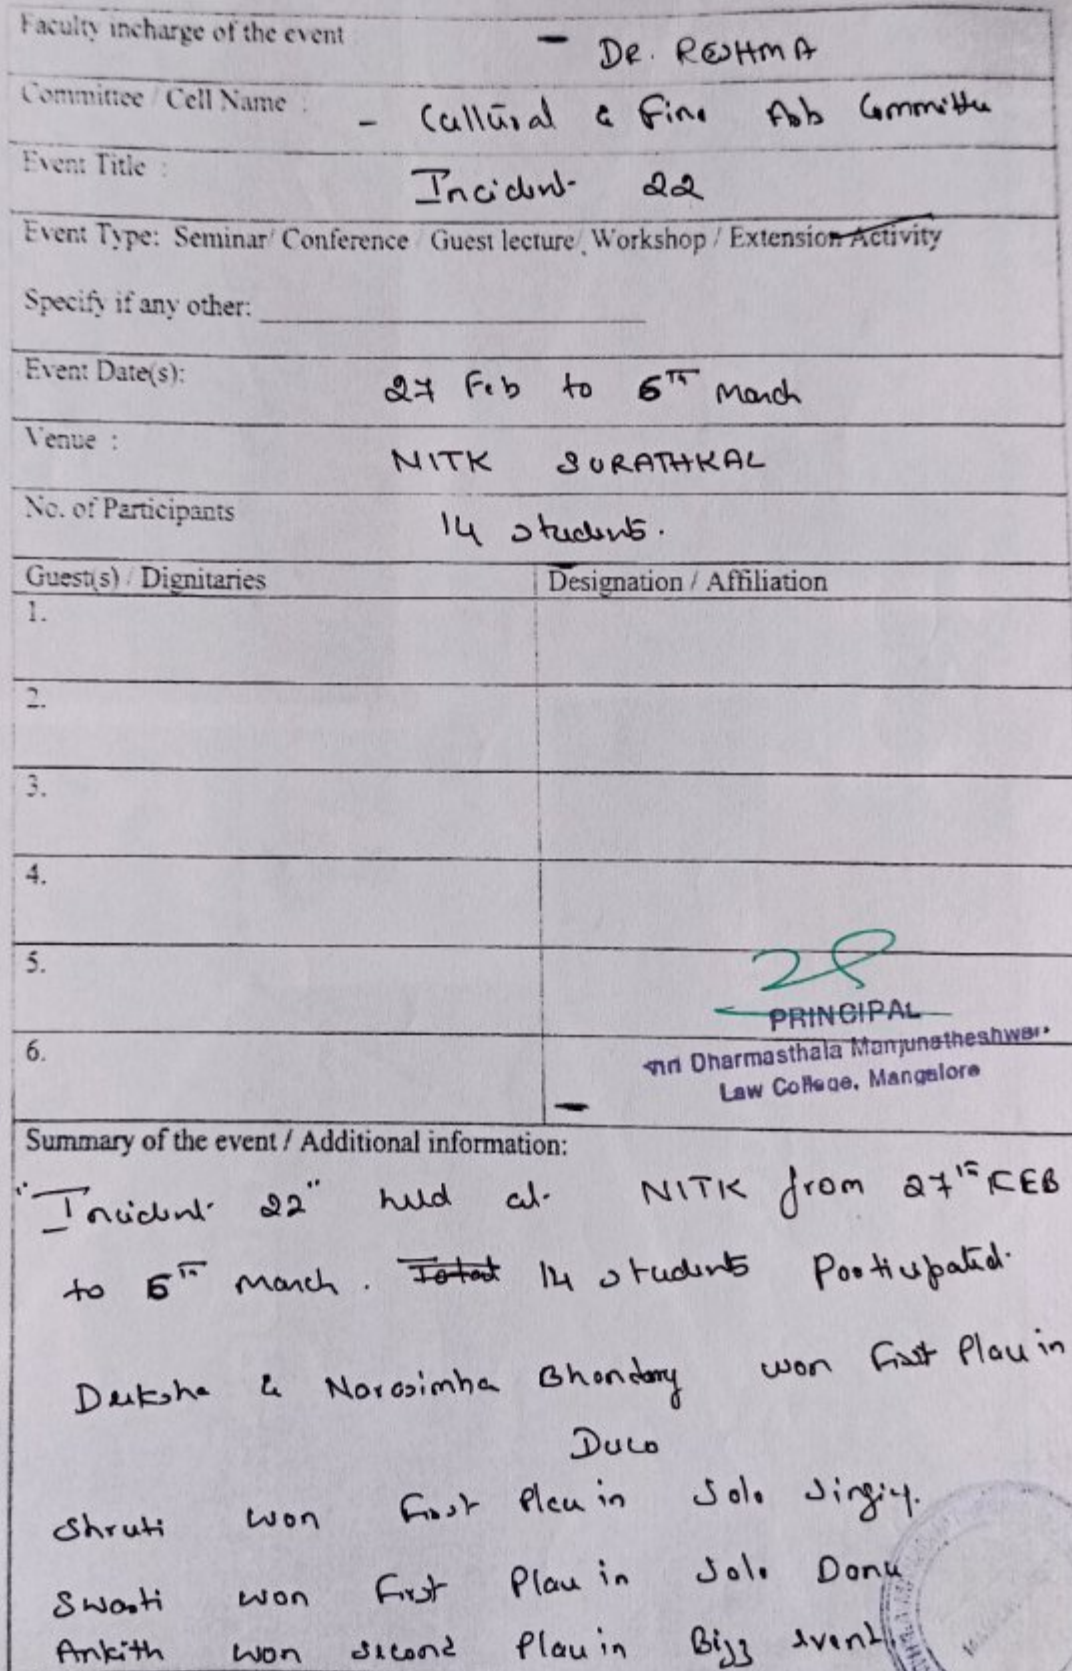 Faculty incharge of the event - DR. RESHMA
Committee / Cell Name : - Cultural & Fine Arts Committee
Event Title : Incident 22
Event Type: Seminar/ Conference / Guest lecture/ Workshop / Extension Activity
Specify if any other:
Event Date(s): 27 Feb to 5TH March
Venue : NITK SURATHKAL
No. of Participants 14 students.
Guest(s) / Dignitaries Designation / Affiliation
1.
2.
3.
4.
5.
PRINCIPAL
6. Shri Dharmasthala Manjunatheshwar
Law College, Mangalore
Summary of the event / Additional information:
"Incident 22" held at NITK from 27TH FEB
to 5TH March. Total 14 students Participated.
Deeksha & Narasimha Bhandary won First Place in
Shruti won First Place in Solo Singing.
Swasti won First Place in Solo Dance
Ankith won second Place in Bizz event.